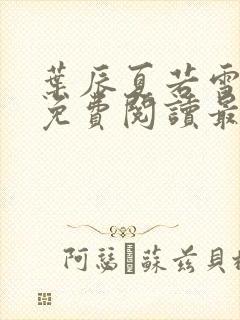 葉辰夏若雪
免費閱讀最
阿瑟·蘇茲貝